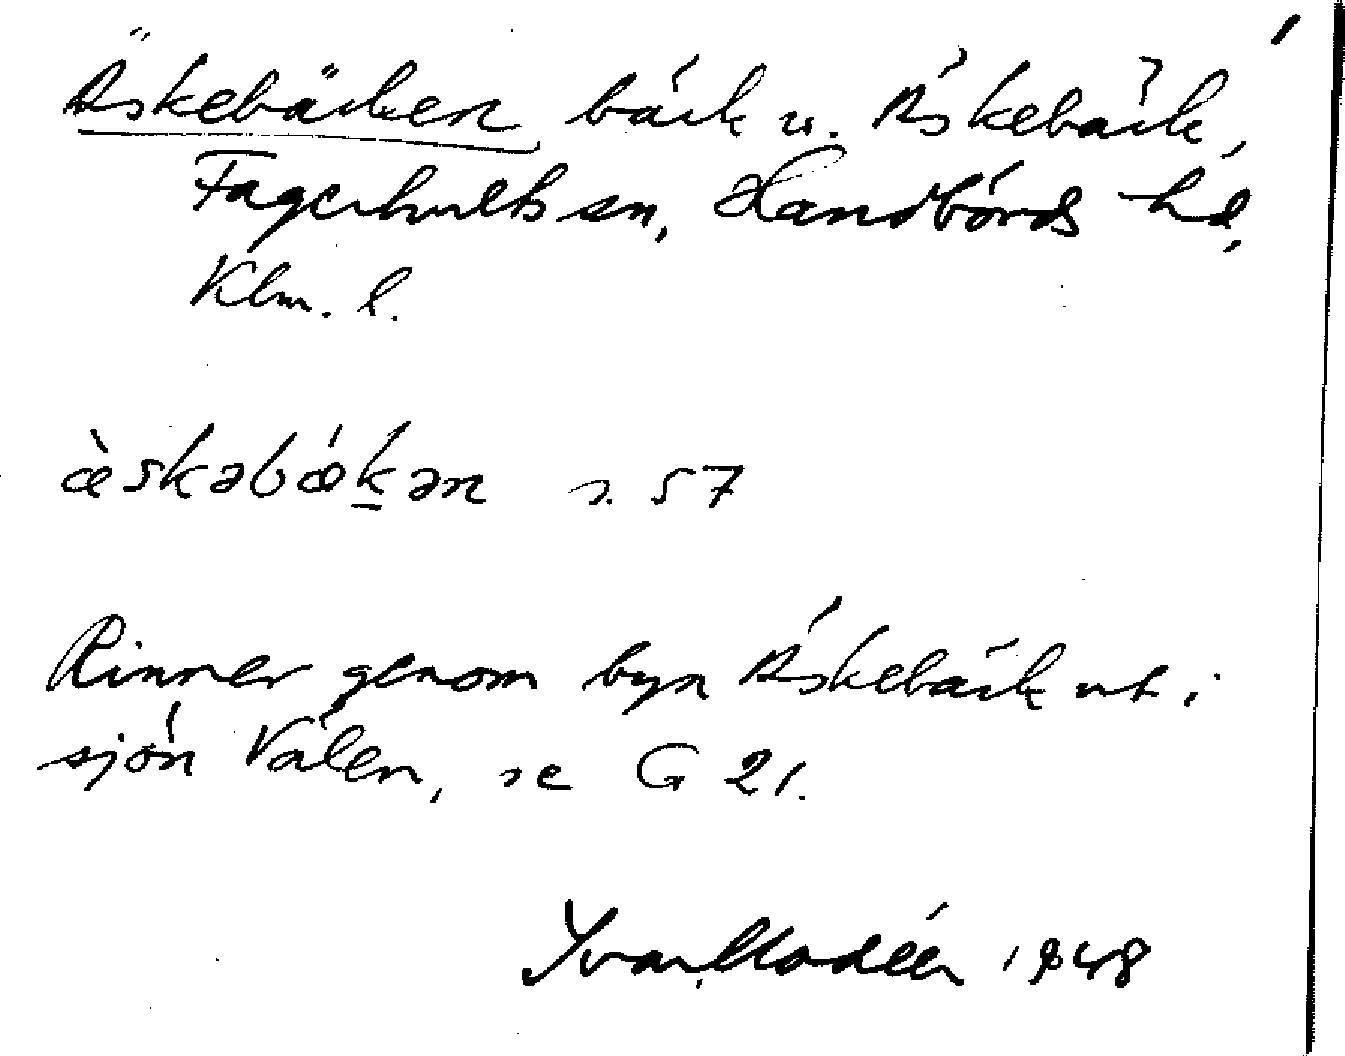 Äskebäcken bäck v. Äskebäck,
Fagerhults sn, Handbörds hd,
Klm. l.
æ̀skəbǽḵən s. 57
Rinner genom byn Äskebäck ut i
sjön Välen, se G 21.
Ivar Modéer 1948